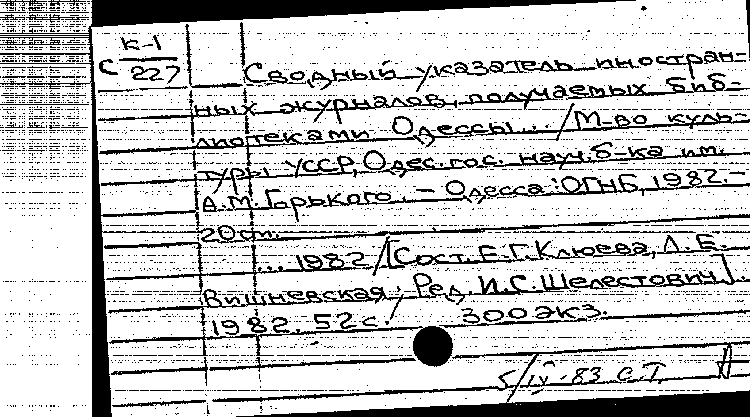 К-1
С 227
Сводный указатель иностран=
ных журналов, получаемых биб=
лиотеками Одессы... / М-во куль=
туры УССР, Одес. гос. науч. б-ка им.
А.М. Горького. - Одесса: ОГНБ, 1982. -
20 см.
... 1982 / [Сост. Е.Г. Клюева, Л.Е.
Вишневская; Ред. И.С. Шелестович].
1982. 52 с. 300 экз.
5/IV-83 С.Т.